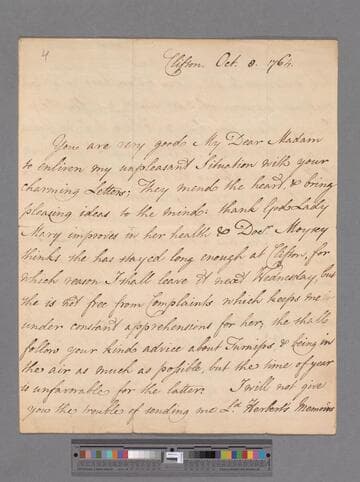 4
Clifton. Oct. 8. 1764.
You are very good My Dear Madam
to enliven my unpleasant Situation with your
charming Letters; They mend the heart, & bring
pleasing ideas to the mind: thank God Lady
Mary improves in her health & Doctr. Moysey
thinks she has stayed long enough at Clifton, for
which reason I shall leave it next Wednesday, but
she is not free from Complaints which keeps me
under constant apprehensions for her; she shall
follow your kind advice about Turnips, & being in
the air as much as possible, but the time of year
is unfavorable for the latter: I will not give
you the trouble of sending me Ld. Herbert's Memoirs